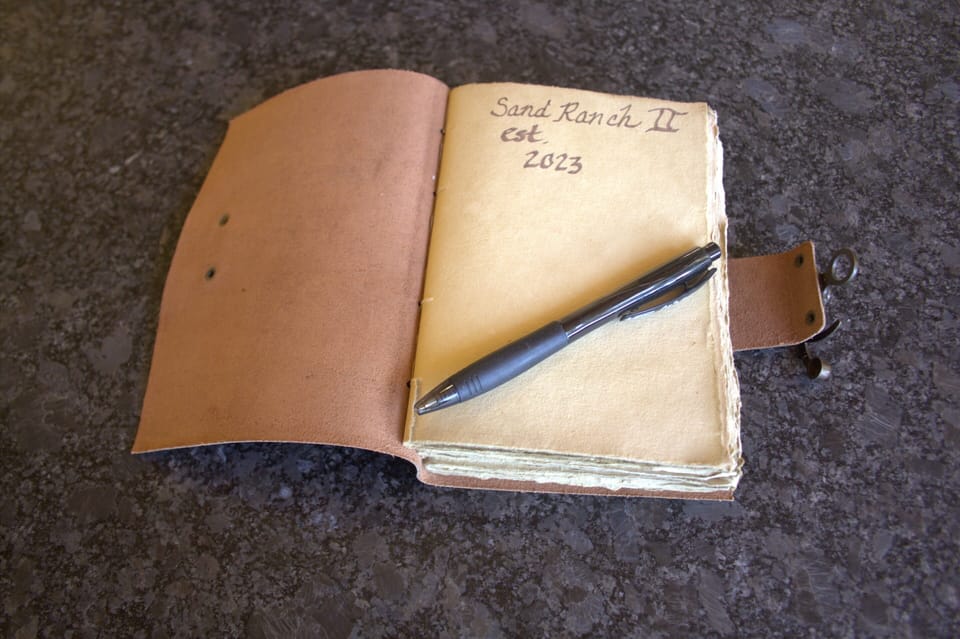 Sand Ranch II
est.
2023